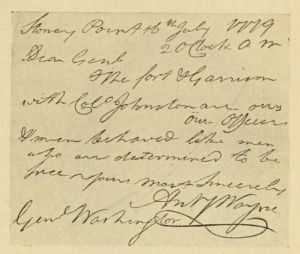 Stoney Point 16th July 1779
2 O'Clock A M
Dear Genl
The fort & Garrison
with Colo. Johnston are ours
Our Officers
& men behaved like men
who are determined to be
free Yours most Sincerely
Anty Wayne
Genl Washington